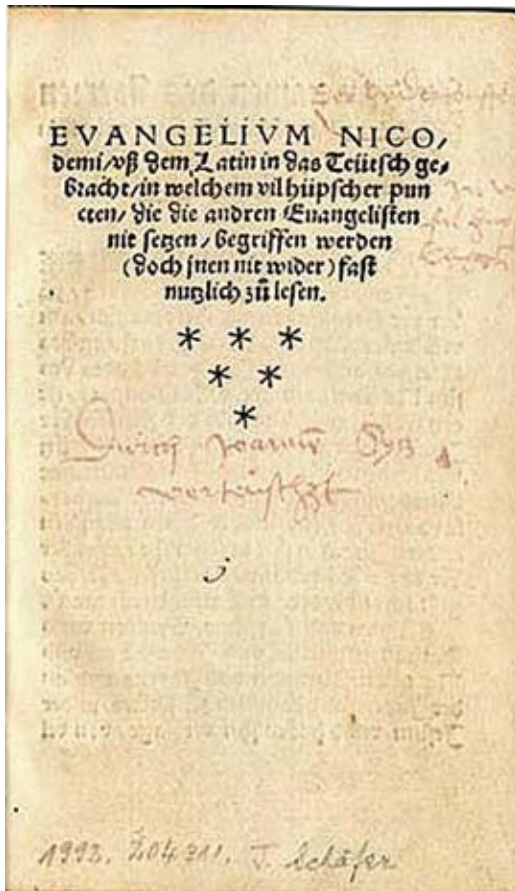 EVANGELIVM NICO,
demi/vß dem Latin in das Teütsch ge,
bracht/in welchem vil hüpscher pun
cten/die die andren Euangelisten
nit setzen/begriffen werden
(doch jnen nit wider) fast
nutzlich zů lesen.
* * *
* *
*
Durch
vertütscht
1992. 204 211. J. Schäfer